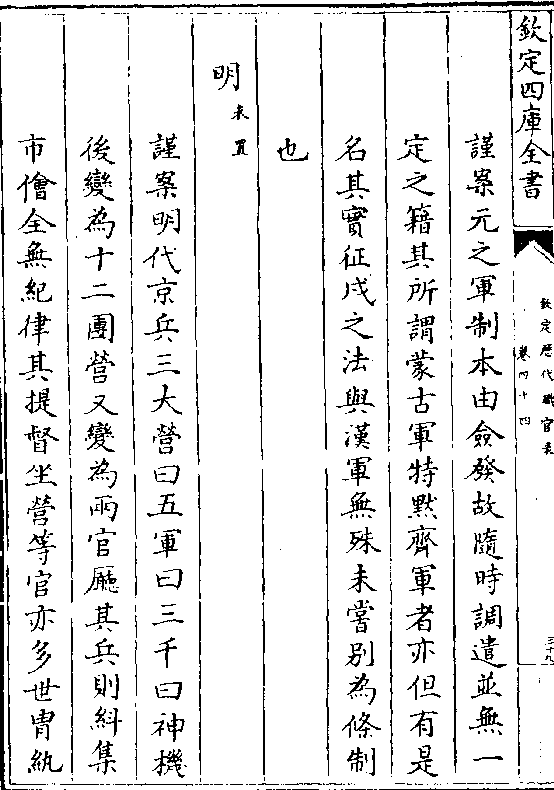 欽定四庫全書
欽定歷代職官表
卷四十四
三十九
謹案元之軍制本由僉發故隨時調遣並無一
定之籍其所謂蒙古軍特黙齊軍者亦但有是
名其實征戍之法與漢軍無殊未嘗别為條制
也
明未置
謹案明代京兵三大營曰五軍曰三千曰神機
後變為十二團營又變為兩官廳其兵則糾集
市儈全無紀律其提督坐營等官亦多世胄紈